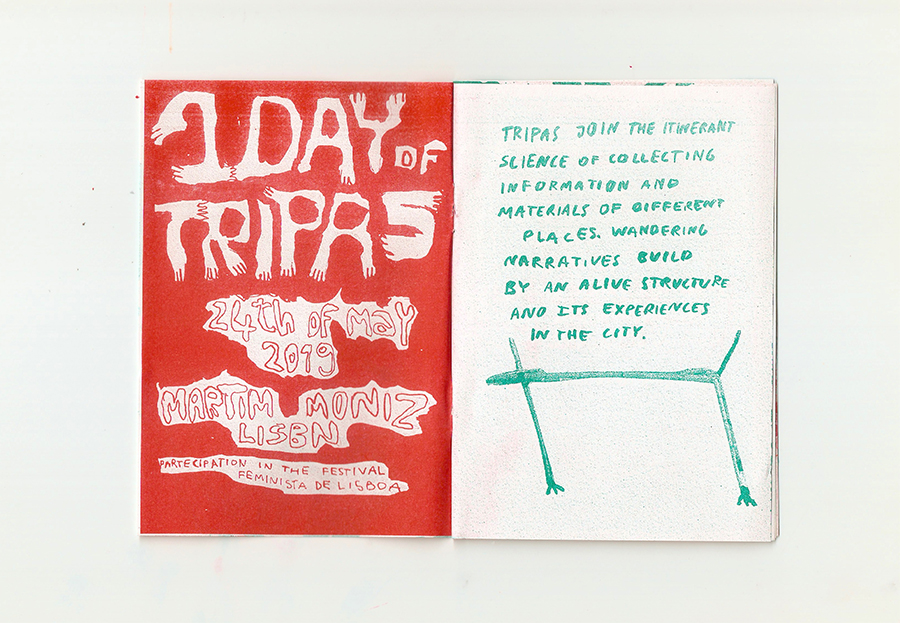 1 DAY OF
TRIPAS
24th OF MAY
2019
MARTIM MONIZ
LISBN
PARTECIPATION IN THE FESTIVAL
FEMINISTA DE LISBOA
TRIPAS JOIN THE ITINERANT
SCIENCE OF COLLECTING
INFORMATION AND
MATERIALS OF DIFFERENT
PLACES. WANDERING
NARRATIVES BUILD
BY AN ALIVE STRUCTURE
AND ITS EXPERIENCES
IN THE CITY.